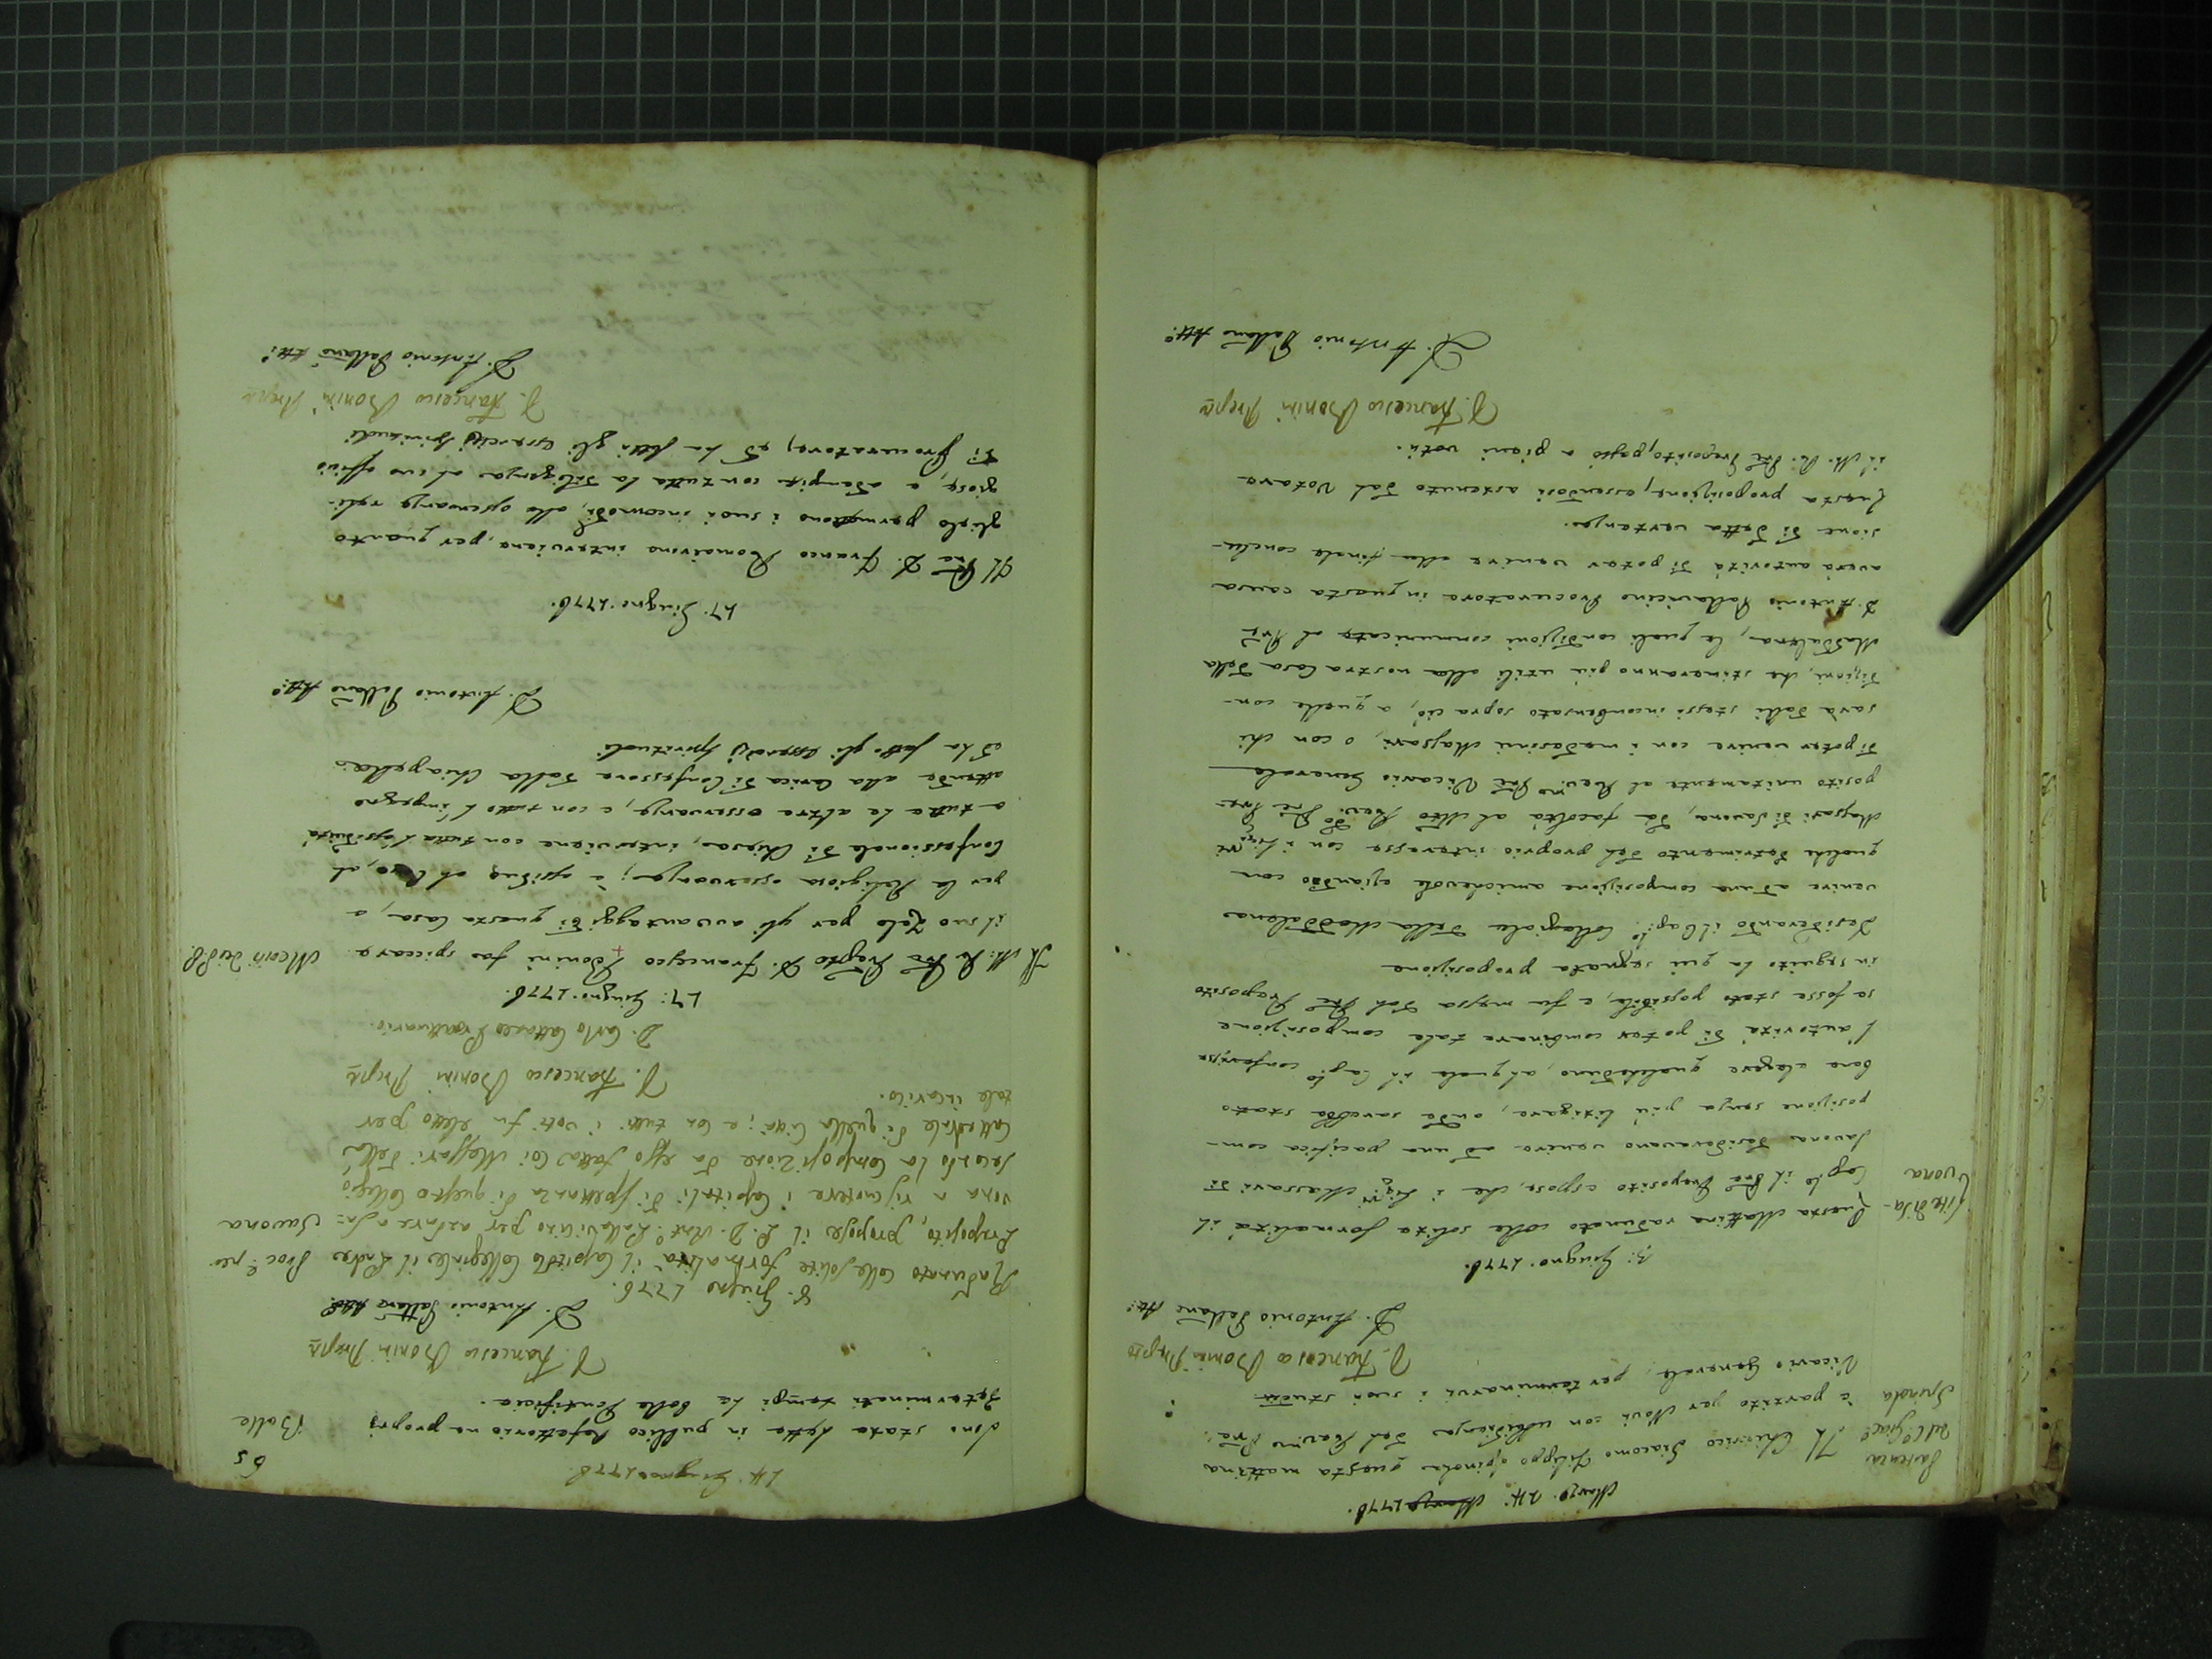 Marzo. 24. Marzo 1776.
Partenza Il Chierico Giacomo Filippo Spinola questa mattina
del C. Giac.o è partito per Novi con ubbidienza del Rev.mo Pre
Spinola Vicario Generale, per terminarvi i suoi studii
D. Francesco Bonini Prep.to
D. Antonio Pallav.no Att.o
3. Giugno. 1776.
Lite di Sa- Questa Mattina radunato colle solite formalità il
vona Cap.lo il Pre Preposito espose, che i Sig.ri Massari di
Savona desideravano venire ad una pacifica com-
posizione senza più litigare, onde sarebbe stato
bene elegere qualcheduno, al quale il Cap.lo conferisse
l'autorità di poter combinare tale composizione
se fosse stato possibile, e fu messa dal Pre Preposito
in seguito la qui segnata proposizione
Desiderando il Cap.lo Collegiale della Maddalena
venire ad una composizione amichevole eziandio con
qualche detrimento del proprio interesse con i Sig.ri
Massari di Savona, dà facoltà al M.to Rev.do Pre Pre-
posito unitamente al Rev.mo Pre Vicario Generale
di poter venire con i medesimi Massari, o con chi
sarà dalli stessi incombensato sopra ciò, a quelle con-
dizioni, che stimeranno più utili alla nostra Casa della
Maddalena, le quali condizioni communicate al Pre
D. Antonio Pallavicino Procuratore in questa causa
averà autorità di poter venire alla finale conclu-
sione di detta vertenza.
Questa proposizione, essendosi astenuto dal votare
il M. R. Pre Preposito, passò a pieni voti.
D. Francesco Bonini Prep.to
D. Antonio Pallav.no Att.o
65
14. Giugno 1776.
Sono state lette in publico Refettorio ne proprj Bolle
determinati tempi le bolle Pontificie.
D. Francesco Bonini Prep.to
D. Antonio Pallav.no Att.o
8. Giugno 1776.
Radunato colle solite formalità il Capitolo Collegiale il Padre Proc.e per
Preposito, propose il P. D. Ant.o Pallavicino per andare a Sa= Savona
vona a riscuotere i Capitali di spettanza di questo Collegio
secondo la Composizione da esso fatta coi Massari della
Cattedrale di quella Città; e con tutti i voti fu eletto per
tale incarico.
D. Francesco Bonini Prep.to
D. Carlo Cattaneo Proattuario
17. Giugno. 1776.
Il M. R. Pre Prep.to D. Francesco + Bonini fa spiccare
il suo zelo per gli avvantaggi di questa Casa, e
per la Religiosa osservanza; è assiduo al Coro, al
Confessionale di Chiesa, interviene con tutta l'assiduità
a tutte le altre osservanze, e con tutto l'ingegno
attende alla carica di Confessore dalla Chiappella
ed ha fatto gli esercizj spirituali
D. Antonio Pallav.no Att.o
17. Giugno. 1776.
Il Pre D. Franco Romairone interviene, per quanto
glielo permettono i suoi incomodi, alle osservanze reli-
giose, e adempie con tutta la diligenza al suo officio
di Procuratore, ed ha fatti gli esercizj spirituali
D. Francesco Bonini Prep.to
D. Antonio Pallav.no Att.o